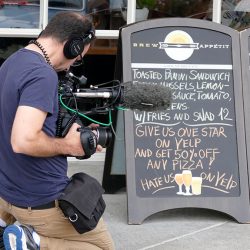 BREW APPÉTIT
TOASTED PANINI SANDWICH
MUSSELS, LEMON-
SAUCE, TOMATO,
ENS.
W/ FRIES AND SALAD 12
GIVE US ONE STAR
ON YELP
AND GET 50% OFF
ANY PIZZA!
HATE US ON YELP